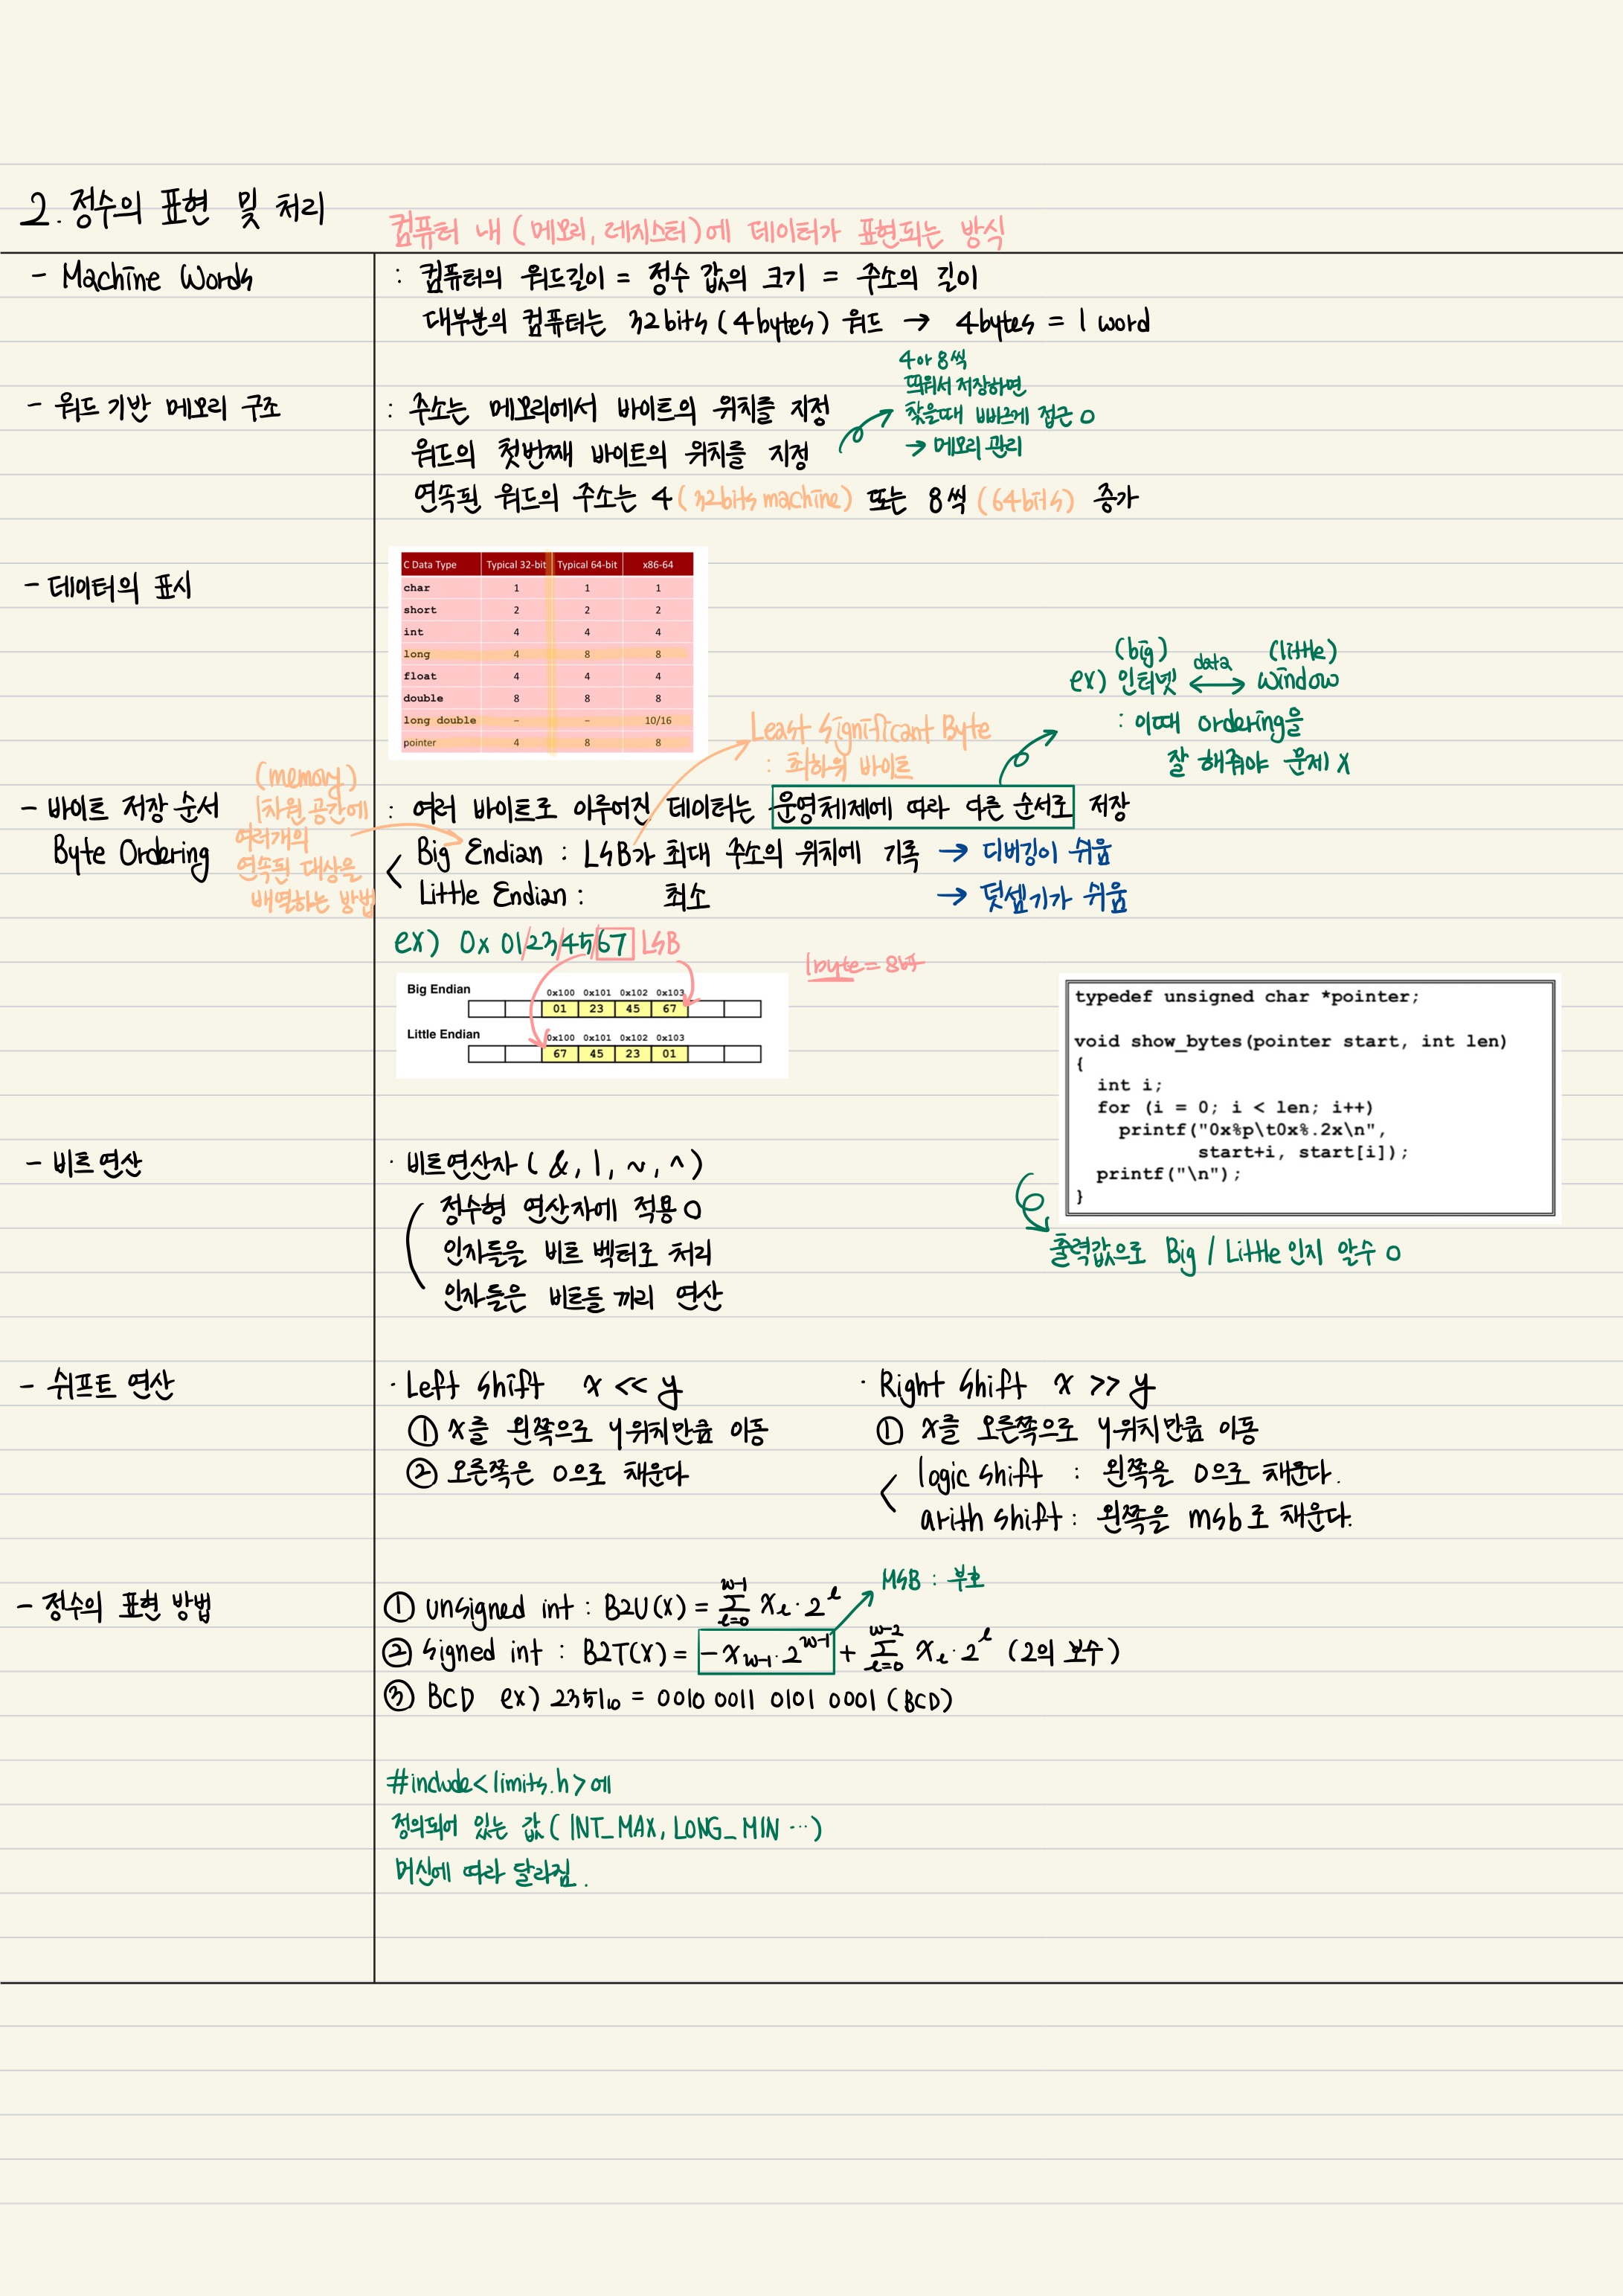 2. 정수의 표현 및 처리
컴퓨터 내 (메모리, 레지스터)에 데이터가 표현되는 방식
- Machine Words
: 컴퓨터의 워드길이 = 정수 값의 크기 = 주소의 길이
대부분의 컴퓨터는 32bits (4bytes) 워드 → 4bytes = 1 word
- 워드 기반 메모리 구조
: 주소는 메모리에서 바이트의 위치를 지정
워드의 첫번째 바이트의 위치를 지정
연속된 워드의 주소는 4 (32bits machine) 또는 8씩 (64bits) 증가
4 or 8씩
띄워서 저장하면
찾을때 빠르게 접근 O
→ 메모리 관리
- 데이터의 표시
C Data Type Typical 32-bit Typical 64-bit x86-64
char 1 1 1
short 2 2 2
int 4 4 4
long 4 8 8
float 4 4 4
double 8 8 8
long double - - 10/16
pointer 4 8 8
(big) (little)
ex) 인터넷 ←data→ window
: 이때 ordering을
잘 해줘야 문제 X
Least Significant Byte
: 최하위 바이트
- 바이트 저장 순서
Byte Ordering
(memory)
1차원 공간에
여러개의
연속된 대상을
배열하는 방법
: 여러 바이트로 이루어진 데이터는 운영체제에 따라 다른 순서로 저장
Big Endian : LSB가 최대 주소의 위치에 기록 → 디버깅이 쉬움
Little Endian : 최소 → 덧셈기가 쉬움
ex) 0x 01/23/45/67 LSB
1byte = 8bit
Big Endian
0x100 0x101 0x102 0x103
01 23 45 67
Little Endian
0x100 0x101 0x102 0x103
67 45 23 01
typedef unsigned char *pointer;
void show_bytes(pointer start, int len)
{
int i;
for (i = 0; i < len; i++)
printf("0x%p\t0x%.2x\n",
start+i, start[i]);
printf("\n");
}
출력값으로 Big / Little 인지 알수 O
- 비트 연산
· 비트연산자 ( &, |, ~, ^ )
정수형 연산자에 적용 O
인자들을 비트 벡터로 처리
인자들은 비트들 끼리 연산
- 쉬프트 연산
· Left shift x << y
① x를 왼쪽으로 y위치만큼 이동
② 오른쪽은 0으로 채운다
· Right shift x >> y
① x를 오른쪽으로 y위치만큼 이동
logic shift : 왼쪽을 0으로 채운다.
arith shift : 왼쪽을 msb로 채운다.
- 정수의 표현 방법
① unsigned int : B2U(X) = Σ_{i=0}^{w-1} x_i · 2^i
MSB : 부호
② signed int : B2T(X) = -x_{w-1} · 2^{w-1} + Σ_{i=0}^{w-2} x_i · 2^i (2의 보수)
③ BCD ex) 2351₁₀ = 0010 0011 0101 0001 (BCD)
#include<limits.h>에
정의되어 있는 값 ( INT_MAX, LONG_MIN ··· )
머신에 따라 달라짐.